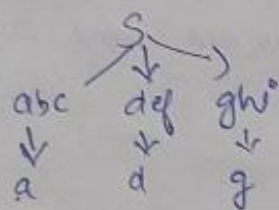 S
abc def ghi
a d g